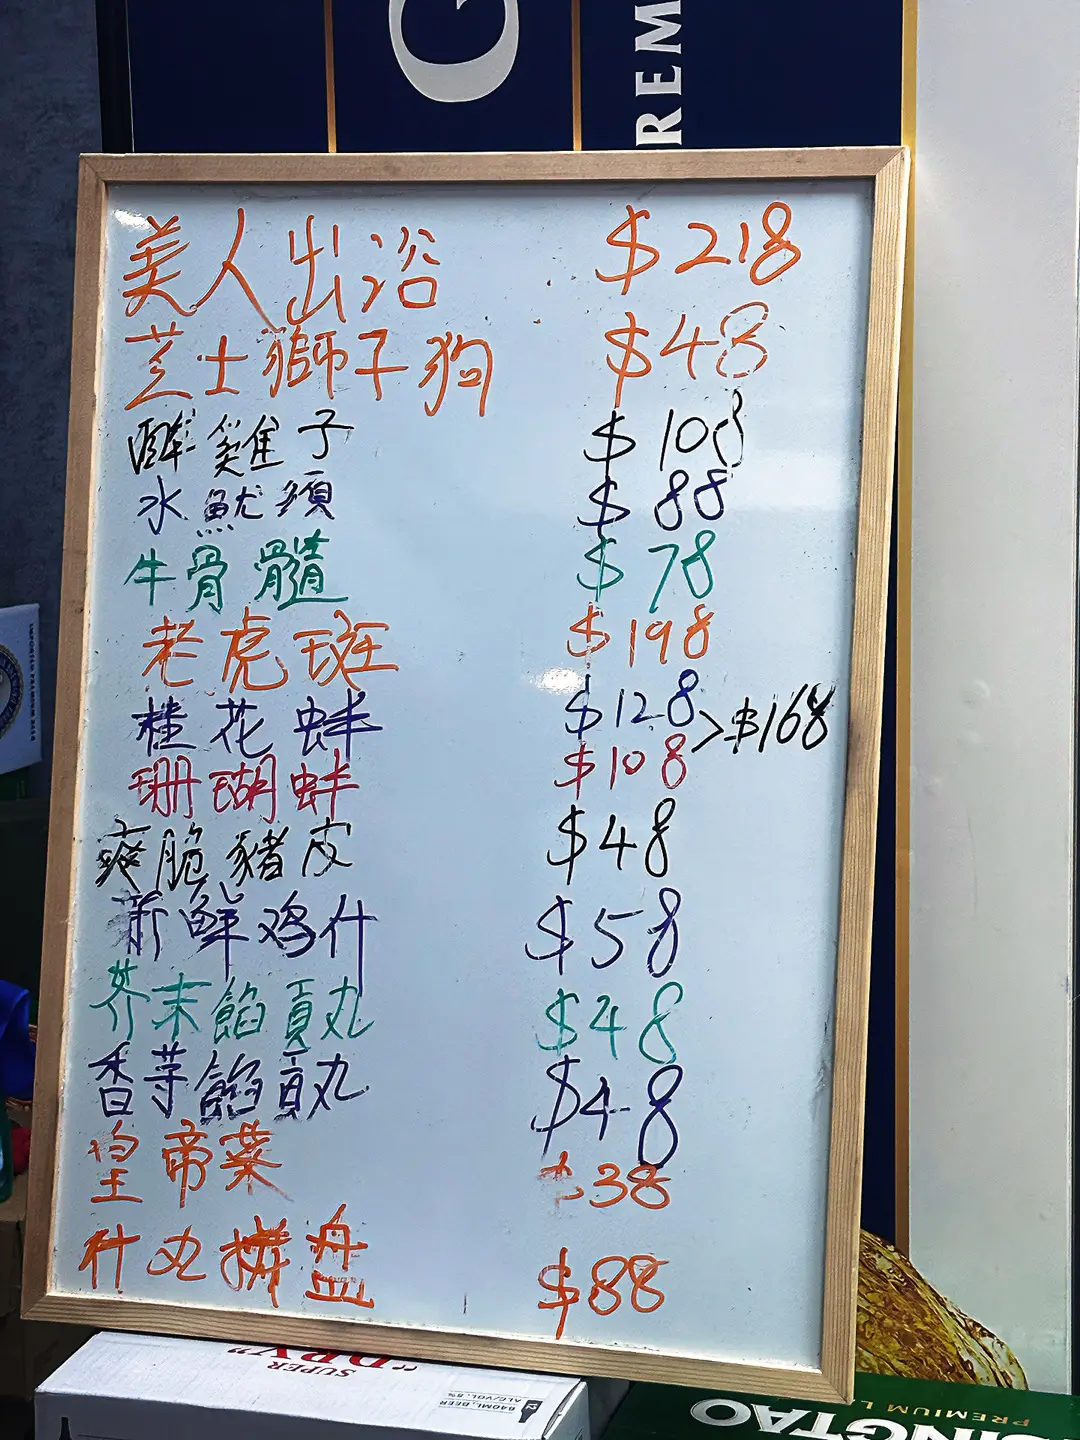 G
REM
美人出浴 $218
芝士獅子狗 $48
醉雞子 $108
水魷須 $88
牛骨髓 $78
老虎斑 $198
桂花蚌 $128
>$168
珊瑚蚌 $108
爽脆豬皮 $48
新鮮鸡什 $58
芥末餡貢丸 $48
香芋餡貢丸 $48
皇帝菜 $38
什丸拼盘 $88
IMPORTED PREMIUM BEER
SUPER
"DRY"
640ML, BEER
ALC/VOL. 5%
PREMIUM L
SINGTAO